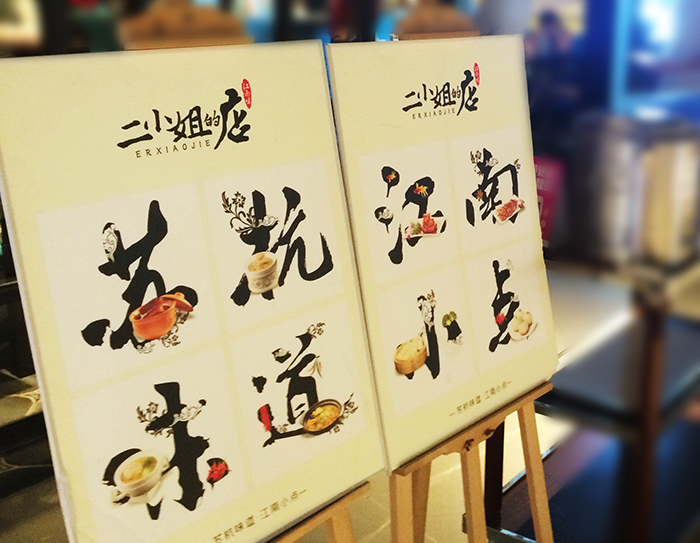 二小姐的店
ERXIAOJIE
苏杭
味道
苏杭味道·江南小点
二小姐的店
ERXIAOJIE
江南
小点
苏杭味道·江南小点